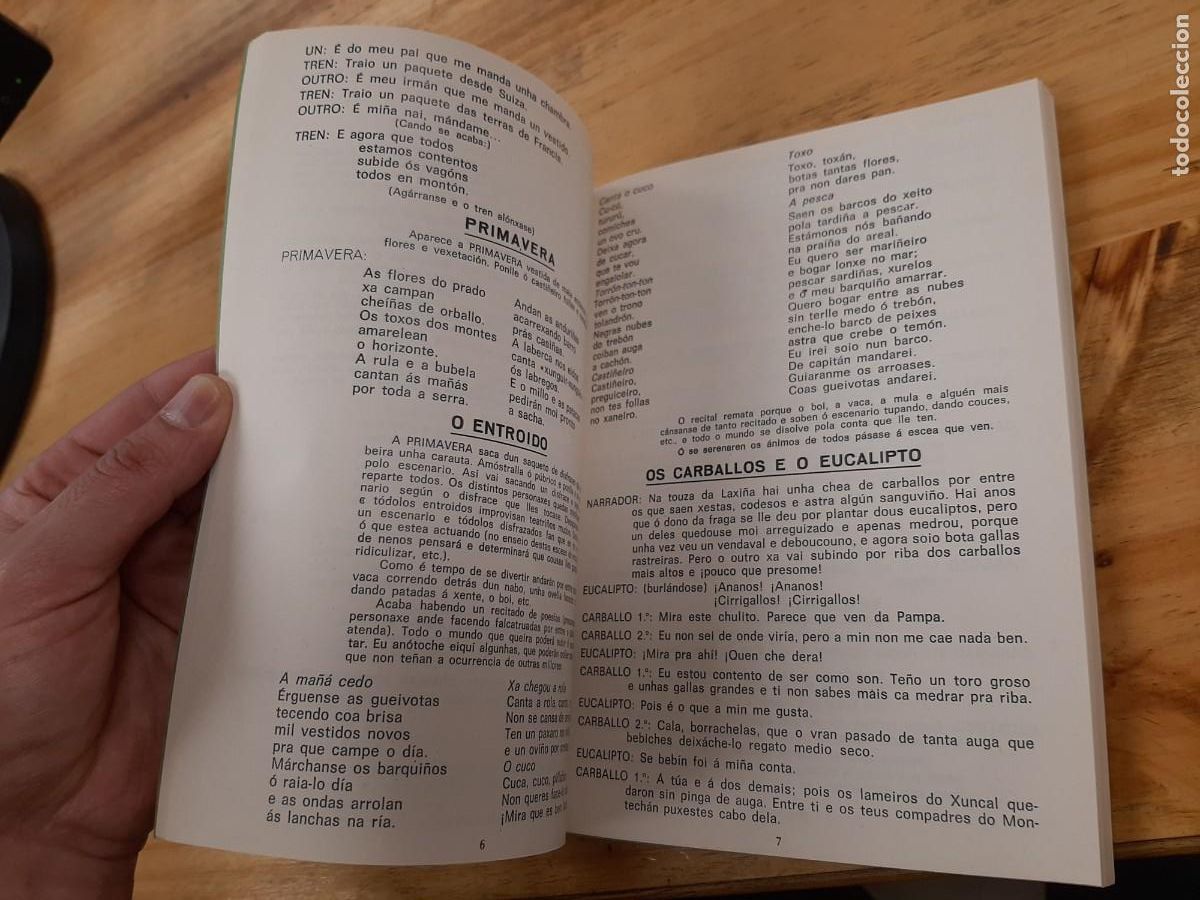 UN: É do meu pai que me manda unha chambra.
TREN: Traio un paquete desde Suiza.
OUTRO: É meu irmán que me manda un vestido
TREN: Traio un paquete das terras de Francia.
OUTRO: É miña nai, mándame...
(Cando se acaba:)
TREN: E agora que todos
estamos contentos
subide ós vagóns
todos en montón.
(Agárranse e o tren alónxase)
PRIMAVERA
Aparece a PRIMAVERA vestida de
flores e vexetación. Ponlle ó castiñeiro
PRIMAVERA:
As flores do prado
xa campan
cheíñas de orballo.
Os toxos dos montes
amarelean
o horizonte.
A rula e a bubela
cantan ás mañás
por toda a serra.
Andan as
acarrexando barro
prás casiñas.
A laberca nos
canta
ós labregos
E o millo e as
pedirán moi
a sacha.
O ENTROIDO
A PRIMAVERA saca dun saqueto de
beira unha carauta. Amóstralla ó púbrico e
polo escenario. Así vai sacando un disfrace
reparte todos. Os distintos personaxes quedan
nario según o disfrace que lles tocase.
e tódolos entroidos improvisan teatriños mudos.
un escenario e tódolos disfrazados fan que
ó que estea actuando (no enseio destas escea
de nenos pensará e determinará que cousas
ridiculizar, etc.).
Como é tempo de se divertir andarán por
vaca correndo detrás dun nabo, unha ovella
dando patadas á xente, o boi, etc
Acaba habendo un recitado de poesías
personaxe ande facendo falcatruadas por entre
atenda). Todo o mundo que queira poderá
tar. Eu anótoche eiquí algunhas, que poderán
que non teñan a ocurrencia de outras millores
A mañá cedo
Érguense as gueivotas
tecendo coa brisa
mil vestidos novos
pra que campe o día.
Márchanse os barquiños
ó raia-lo día
e as ondas arrolan
ás lanchas na ría.
Xa chegou a rola
Canta a rola
Non se cansa de
Ten un paxaro no
e un oviño por
O cuco
Cuca, cuco,
Non queres
¡Mira que es ben
6
Canta o cuco
Cu-có,
tururú,
comiches
un ovo cru.
Deixa agora
de cucar,
que te vou
engalolar.
Torrón-ton-ton
Torrón-ton-ton
ven o trono
tolandrón.
Negras nubes
do trebón
coiban auga
a cachón.
Castiñeiro
Castiñeiro,
preguiceiro,
non tes follas
no xaneiro.
Toxo
Toxo, toxán,
botas tantas flores,
pra non dares pan.
A pesca
Saen os barcos do xeito
pola tardiña a pescar.
Estámonos nós bañando
na praíña do areal.
Eu quero ser mariñeiro
e bogar lonxe no mar;
pescar sardiñas, xurelos
e o meu barquiño amarrar.
Quero bogar entre as nubes
sin terlle medo ó trebón,
enche-lo barco de peixes
astra que crebe o temón.
Eu irei soio nun barco.
De capitán mandarei.
Guiaranme os arroases.
Coas gueivotas andarei.
O recital remata porque o boi, a vaca, a mula e alguén mais
cánsanse de tanto recitado e soben ó escenario tupando, dando couces,
etc., e todo o mundo se disolve pola conta que lle ten.
Ó se serenaren os ánimos de todos pásase á escea que ven.
OS CARBALLOS E O EUCALIPTO
NARRADOR: Na touza da Laxiña hai unha chea de carballos por entre
os que saen xestas, codesos e astra algún sanguviño. Hai anos
que ó dono da fraga se lle deu por plantar dous eucaliptos, pero
un deles quedouse moi arreguizado e apenas medrou, porque
unha vez veu un vendaval e deboucouno, e agora soio bota gallas
rastreiras. Pero o outro xa vai subindo por riba dos carballos
mais altos e ¡pouco que presome!
EUCALIPTO: (burlándose) ¡Ananos! ¡Ananos!
¡Cirrigallos! ¡Cirrigallos!
CARBALLO 1.º: Mira este chulito. Parece que ven da Pampa.
CARBALLO 2.º: Eu non sei de onde viría, pero a min non me cae nada ben.
EUCALIPTO: ¡Mira pra ahí! ¡Quen che dera!
CARBALLO 1.º: Eu estou contento de ser como son. Teño un toro groso
e unhas gallas grandes e ti non sabes máis ca medrar pra riba.
EUCALIPTO: Pois é o que a min me gusta.
CARBALLO 2.º: Cala, borrachelas, que o vran pasado de tanta auga que
bebiches deixáche-lo regato medio seco.
EUCALIPTO: Se bebín foi á miña conta.
CARBALLO 1.º: Á túa e á dos demais; pois os lameiros do Xuncal que-
daron sin pinga de auga. Entre ti e os teus compadres do Mon-
techán puxestes cabo dela.
7
todocoleccion